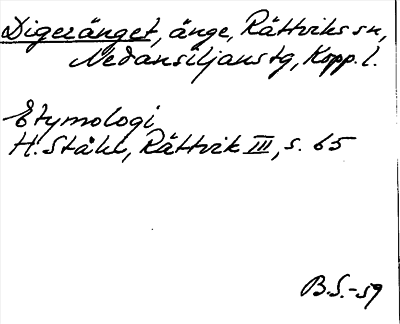 Digeränget, änge, Rättviks sn,
Nedansiljans tg, Kopp. l.
Etymologi
H. Ståhl, Rättvik III, s. 65
B.S.-59